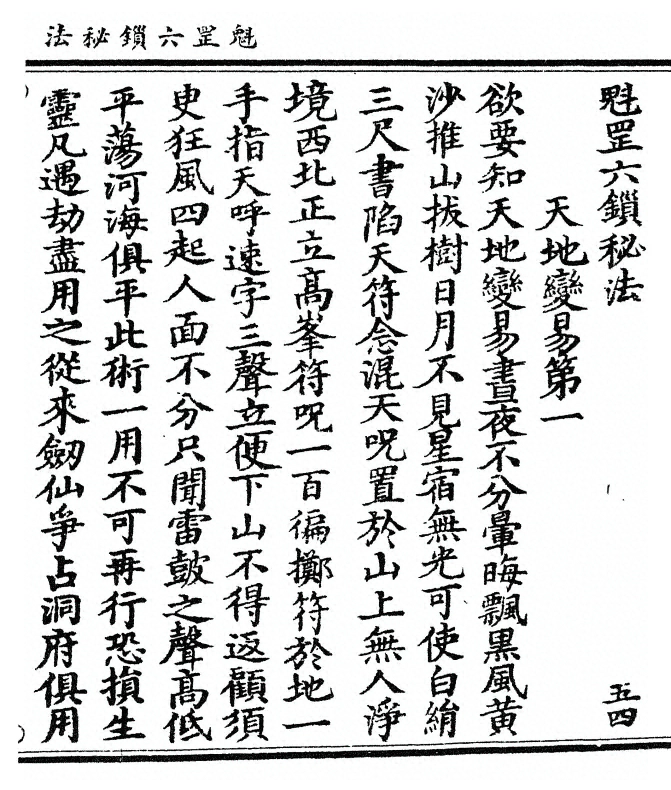 魁罡六鎖秘法
魁罡六鎖秘法
五四
天地變易第一
欲要知天地變易晝夜不分暈晦飄黑風黃
沙推山拔樹日月不見星宿無光可使白絹
三尺書陷天符念混天呪置於山上無人淨
境西北正立高峯符呪一百徧擲符於地一
手指天呼速字三聲立便下山不得返顧須
臾狂風四起人面不分只聞雷鼓之聲高低
平蕩河海俱平此術一用不可再行恐損生
靈凡遇劫盡用之從來劔仙爭占洞府俱用